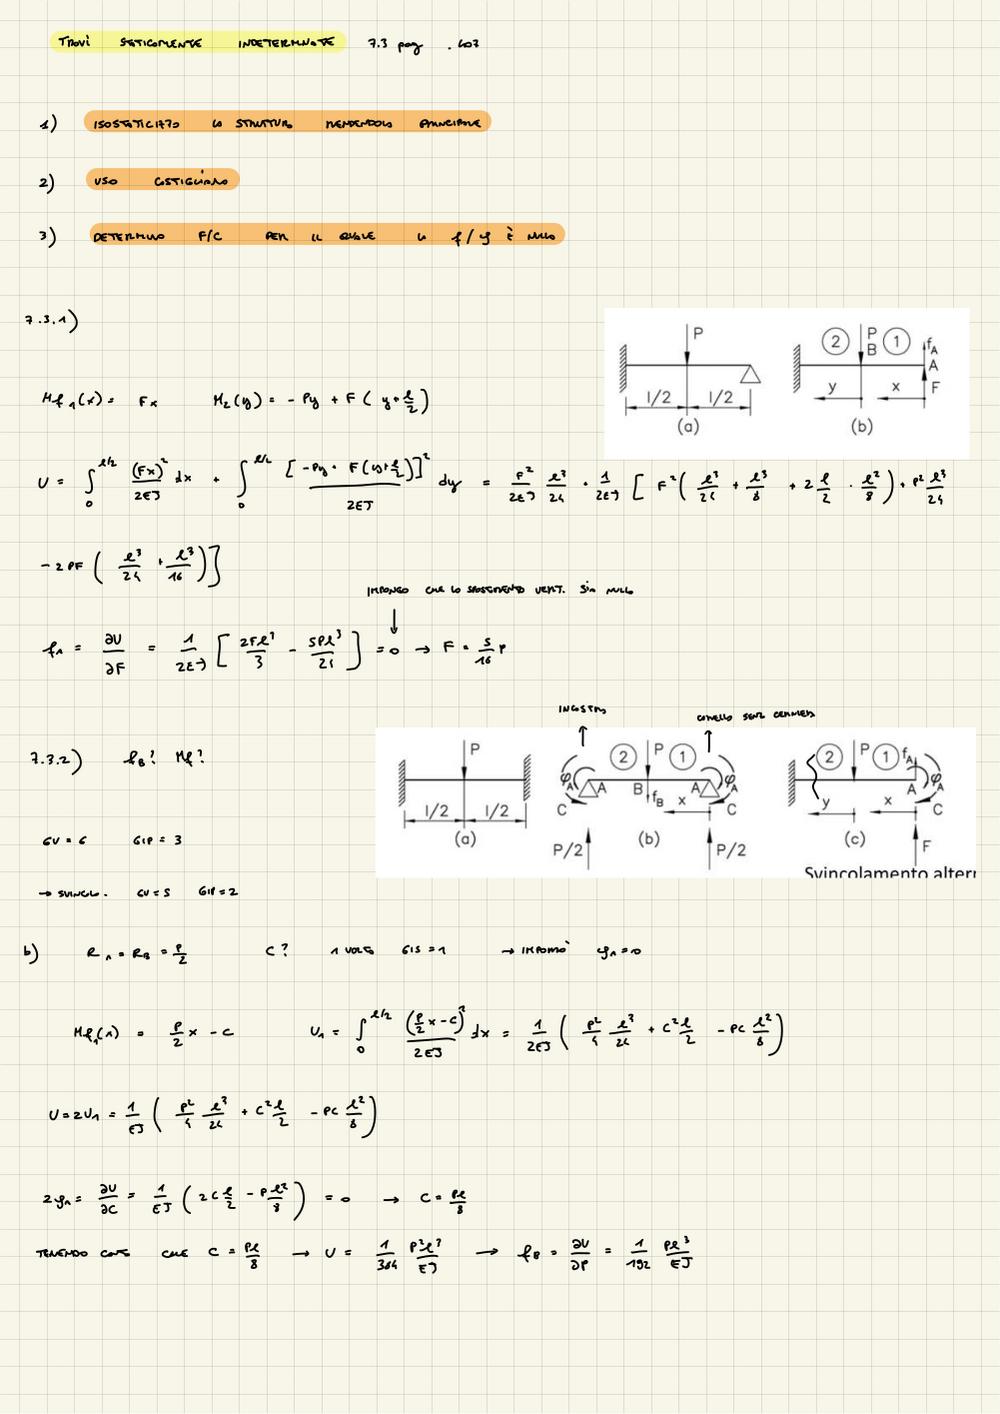 TRAVI STATICAMENTE INDETERMINATE 7.3 pag. 407
1) ISOSTATICIZZO LA STRUTTURA RENDENDOLA PRINCIPALE
2) USO CASTIGLIANO
3) DETERMINO F/C PER IL QUALE LA f/φ È NULLO
7.3.1)
P
l/2 l/2
(a)
2 P B 1 fA A
y x F
(b)
Mf1(x) = Fx M2(y) = - Py + F ( y + l/2 )
U = ∫0^l/2 (Fx)²/2EJ dx + ∫0^l/2 [-Py + F(y+l/2)]²/2EJ dy = F²/2EJ l³/24 + 1/2EJ [ F² ( l³/24 + l³/8 + 2 l/2 · l²/8 ) + P² l³/24
- 2PF ( l³/24 + l³/16 ) ]
IMPONGO CHE LO SPOSTAMENTO VERT. SIA NULLO
fA = ∂U/∂F = 1/2EJ [ 2Fl³/3 - 5Pl³/24 ] = 0 → F = 5/16 P
7.3.2) fB? Mf?
INCASTRO
CARRELLO SENZA CERNIERA
P
l/2 l/2
(a)
2 P 1
φA A B fB x A φA
C C
P/2 (b) P/2
2 P 1 fA φA
y x A C
(c) F
Svincolamento altern
GV = 6 GIP = 3
→ SVINCOL. GV = 5 GIP = 2
b) RA = RB = P/2 C? 1 VOLTA GIS = 1 → IMPORRÒ φA = 0
Mf1(x) = P/2 x - C U1 = ∫0^l/2 (P/2 x - C)²/2EJ dx = 1/2EJ ( P²/4 l³/24 + C² l/2 - PC l²/8 )
U = 2U1 = 1/EJ ( P²/4 l³/24 + C² l/2 - PC l²/8 )
2φA = ∂U/∂C = 1/EJ ( 2C l/2 - P l²/8 ) = 0 → C = Pl/8
TENENDO CONTO CHE C = Pl/8 → U = 1/384 P²l³/EJ → fB = ∂U/∂P = 1/192 Pl³/EJ